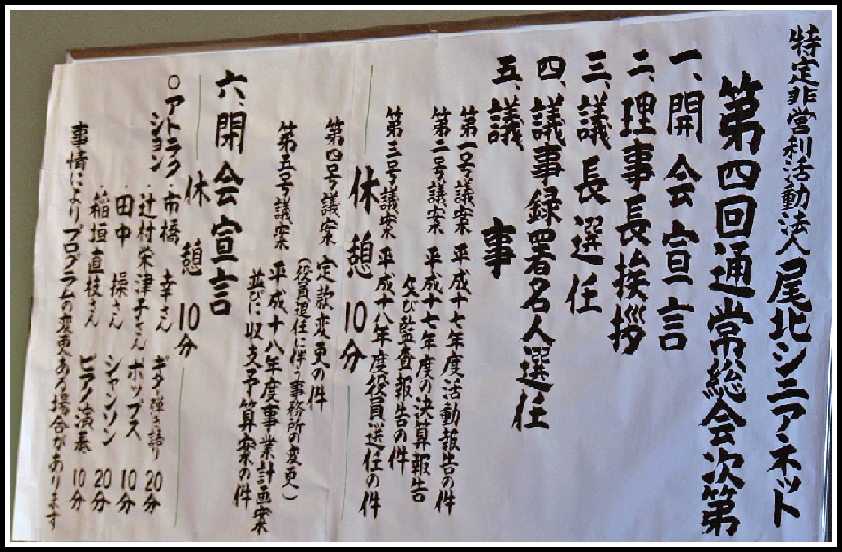 特定非営利活動法人尾北シニアネット
第四回通常総会次第
一、開会宣言
二、理事長挨拶
三、議長選任
四、議事録署名人選任
五、議 事
第一号議案 平成十七年度活動報告の件
第二号議案 平成十七年度の決算報告
及び監査報告の件
第三号議案 平成十八年度役員選任の件
休憩 10分
第四号議案 定款変更の件
(役員選任に伴う事務所の変更)
第五号議案 平成十八年度事業計画案
並びに収支予算案の件
六、閉会宣言
休憩 10分
○アトラクション・市橋 幸さん ギター弾き語り 20分
・辻村栄津子さん ポップス 10分
・田中 操さん シャンソン 20分
・稲垣直枝さん ピアノ演奏 10分
事情によりプログラムの変更ある場合があります